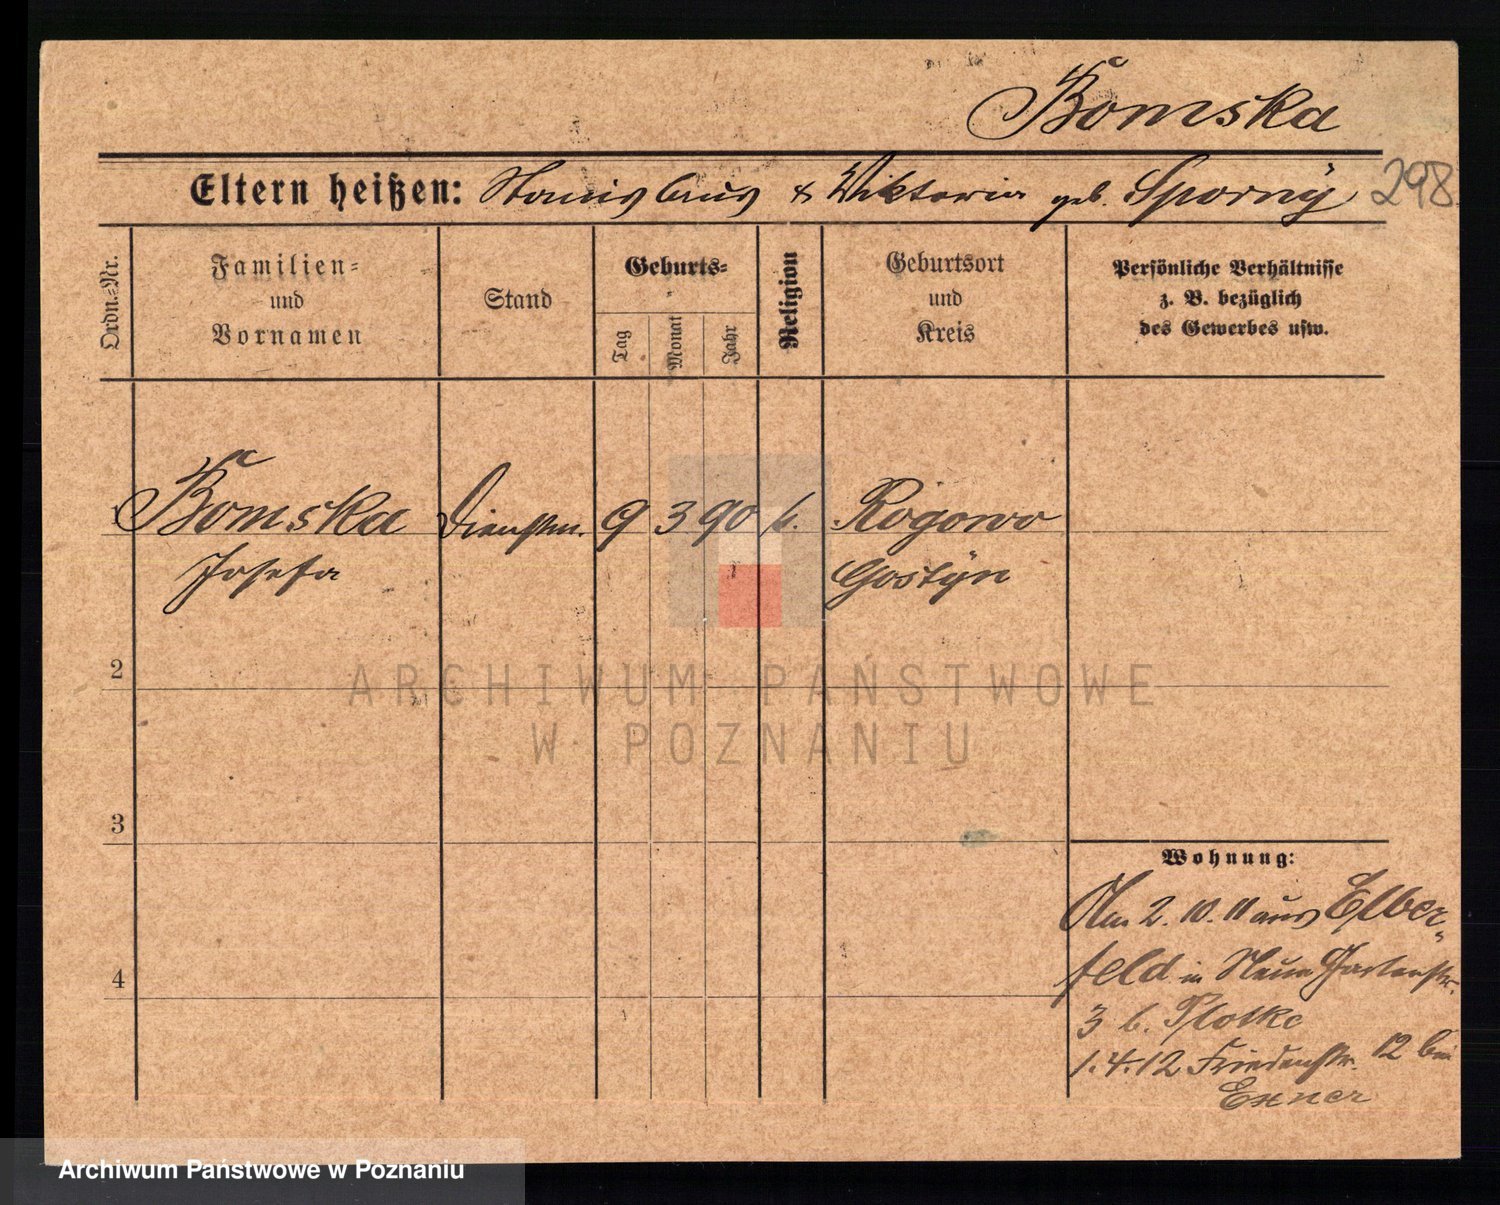 Bomska
298
Eltern heißen: Stanislaus & Wiktoria geb. Sporny
Ordn.-Nr.
Familien- und Vornamen
Stand
Geburts-
Tag
Monat
Jahr
Religion
Geburtsort und Kreis
Persönliche Verhältnisse z. B. bezüglich des Gewerbes usw.
1 Bomska Dienstm. 9 3 90 k. Rogowo
Josefa Gostyn
2
3
4
Wohnung:
Am 2. 10. 11 aus Elber-
feld in Neue Gartenstr.
3 b. Plotke
1.4.12 Friedenstr. 12 bei
Exner
ARCHIWUM PAŃSTWOWE
W POZNANIU
Archiwum Państwowe w Poznaniu